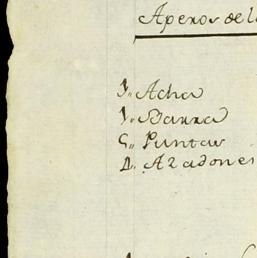 Aperos de l
1.. Acha
1.. Barra
6.. Puntas
4.. Aradones